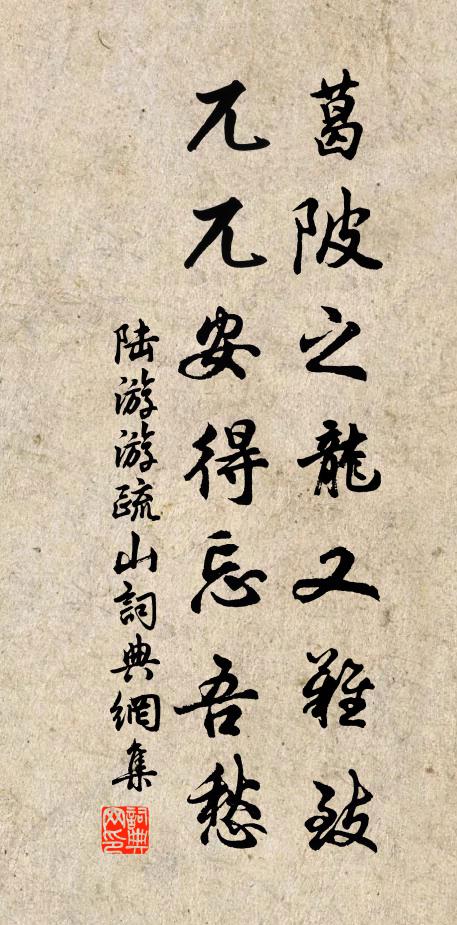 葛陂之龍又難致
兀兀安得忘吾愁
陆游游疏山詞典網集
詞典网印